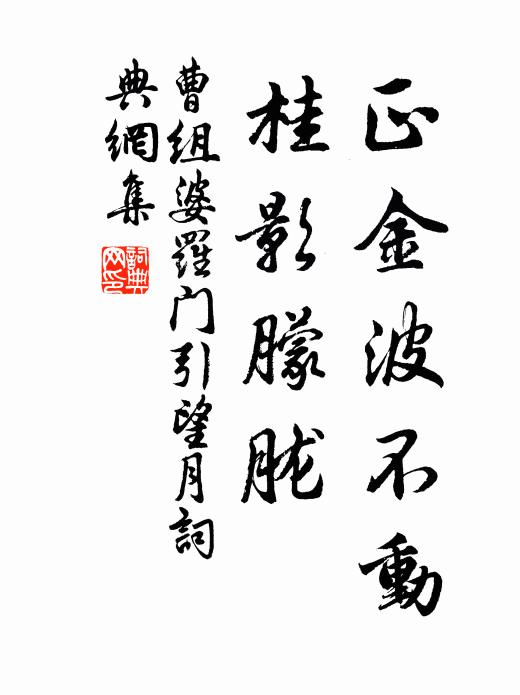 正金波不動
桂影朦朧
曹組婆羅門引望月詞
典網集
詞典
网印